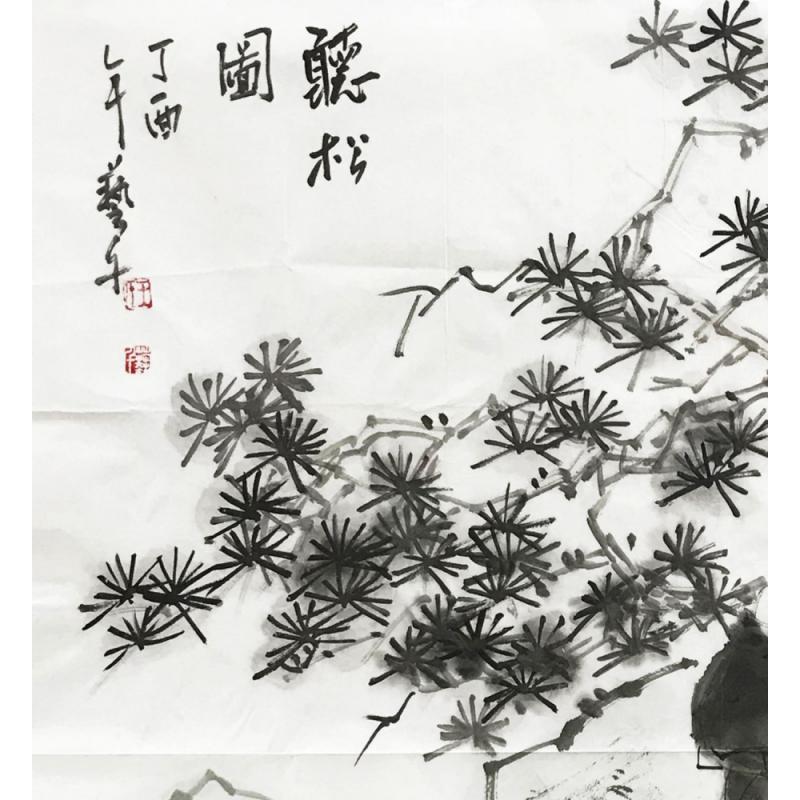 聽松
圖
丁酉
年藝